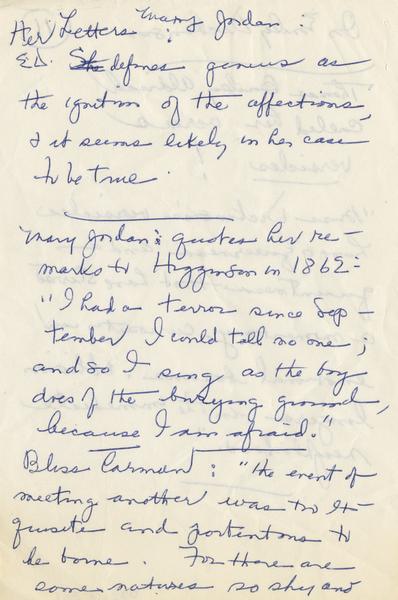 Mary Jordan :
Her Letters
E.D. She defines genius as
the ignition of the affections,
& it seems likely in her case
to be true.
Mary Jordan : quotes her re-
marks to Higginson in 1862:
"I had a terror since Sep-
tember I could tell no one;
and so I sing as the boy
does of the burying ground,
because I am afraid."
Bliss Carman : "the event of
meeting another was too ex-
quisite and portentous to
be borne. For there are
some natures so shy and